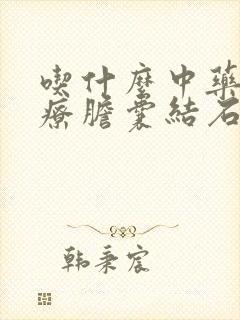 喫什麼中藥
療膽囊結石
韩秉宸